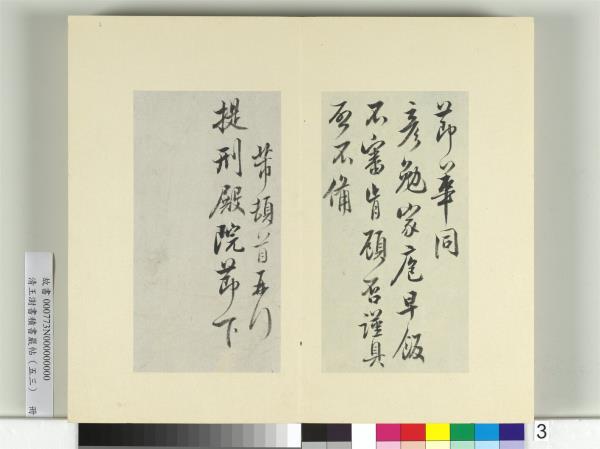 節華同
彥勉家庖早飯
不審肯顧否謹具
啓不備
芾頓首再行
提刑殿院節下
故書 000773N000000000
清王澍書積書巖帖(五三) 冊
3